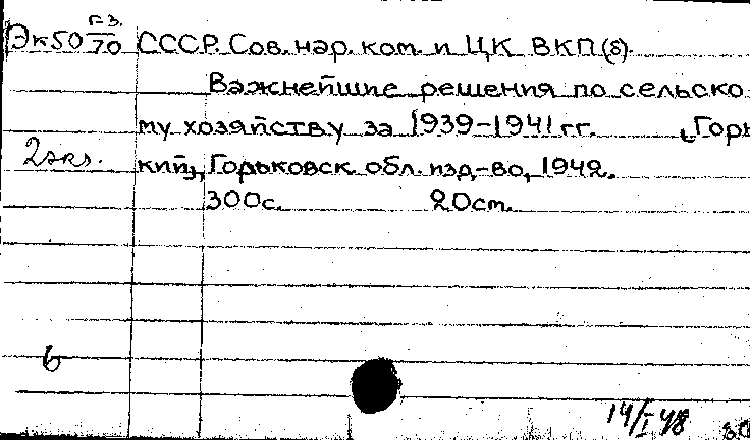 Эк50 г.з./70 СССР. Сов. нар. ком. и ЦК ВКП(б).
Важнейшие решения по сельско-
му хозяйству за 1939-1941 гг. [Горь
2 экз. кий], Горьковск. обл. изд-во, 1942.
300 с. 20 ст.
б
14/I 48